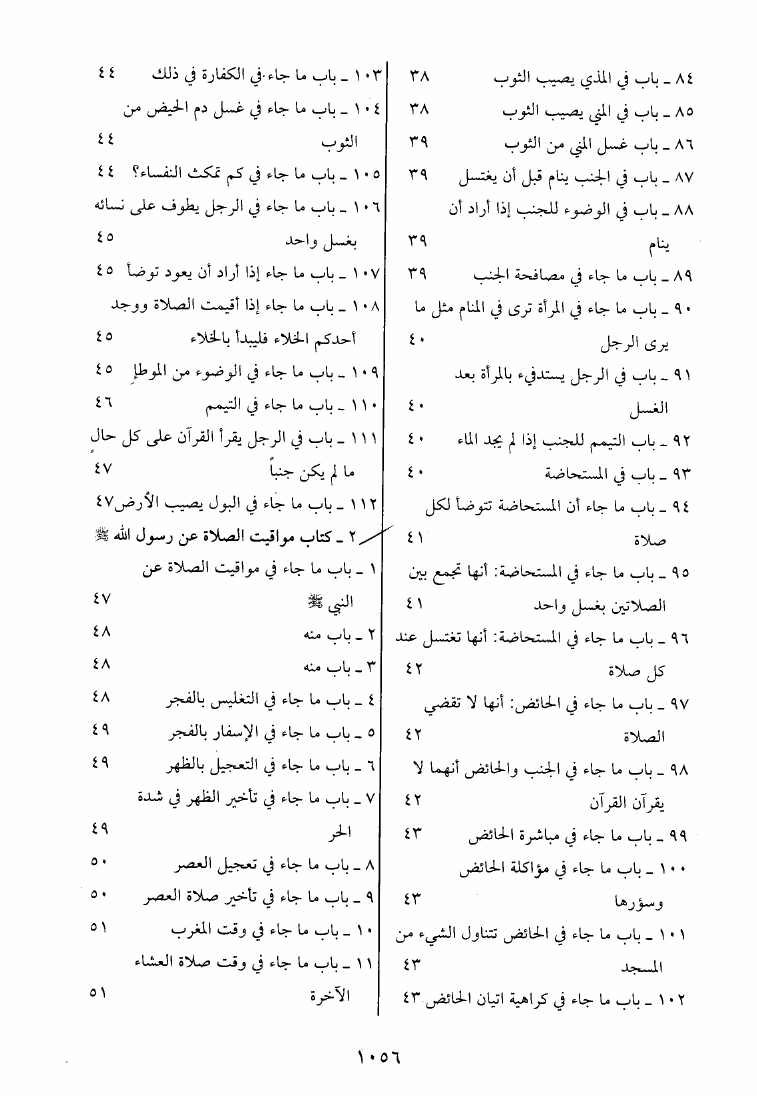 ٨٤ ـ باب في المذي يصيب الثوب ٣٨
٨٥ ـ باب في المني يصيب الثوب ٣٨
٨٦ ـ باب غسل المني من الثوب ٣٩
٨٧ ـ باب في الجنب ينام قبل أن يغتسل ٣٩
٨٨ ـ باب في الوضوء للجنب إذا أراد أن
ينام ٣٩
٨٩ ـ باب ما جاء في مصافحة الجنب ٣٩
٩٠ ـ باب ما جاء في المرأة ترى في المنام مثل ما
يرى الرجل ٤٠
٩١ ـ باب في الرجل يستدفىء بالمرأة بعد
الغسل ٤٠
٩٢ ـ باب التيمم للجنب إذا لم يجد الماء ٤٠
٩٣ ـ باب في المستحاضة ٤٠
٩٤ ـ باب ما جاء أن المستحاضة تتوضأ لكل
صلاة ٤١
٩٥ ـ باب ما جاء في المستحاضة: أنها تجمع بين
الصلاتين بغسل واحد ٤١
٩٦ ـ باب ما جاء في المستحاضة: أنها تغتسل عند
كل صلاة ٤٢
٩٧ ـ باب ما جاء في الحائض: أنها لا تقضي
الصلاة ٤٢
٩٨ ـ باب ما جاء في الجنب والحائض أنهما لا
يقرآن القرآن ٤٢
٩٩ ـ باب ما جاء في مباشرة الحائض ٤٣
١٠٠ ـ باب ما جاء في مؤاكلة الحائض
وسؤرها ٤٣
١٠١ ـ باب ما جاء في الحائض تتناول الشيء من
المسجد ٤٣
١٠٢ ـ باب ما جاء في كراهية اتيان الحائض ٤٣
١٠٣ ـ باب ما جاء في الكفارة في ذلك ٤٤
١٠٤ ـ باب ما جاء في غسل دم الحيض من
الثوب ٤٤
١٠٥ ـ باب ما جاء في كم تمكث النفساء؟ ٤٤
١٠٦ ـ باب ما جاء في الرجل يطوف على نسائه
بغسل واحد ٤٥
١٠٧ ـ باب ما جاء إذا أراد أن يعود توضأ ٤٥
١٠٨ ـ باب ما جاء إذا أقيمت الصلاة ووجد
أحدكم الخلاء فليبدأ بالخلاء ٤٥
١٠٩ ـ باب ما جاء في الوضوء من الموطإ ٤٥
١١٠ ـ باب ما جاء في التيمم ٤٦
١١١ ـ باب في الرجل يقرأ القرآن على كل حالٍ
ما لم يكن جنباً ٤٧
١١٢ ـ باب ما جاء في البول يصيب الأرض ٤٧
٢ ـ كتاب مواقيت الصلاة عن رسول الله ﷺ
١ ـ باب ما جاء في مواقيت الصلاة عن
النبي ﷺ ٤٧
٢ ـ باب منه ٤٨
٣ ـ باب منه ٤٨
٤ ـ باب ما جاء في التغليس بالفجر ٤٨
٥ ـ باب ما جاء في الإسفار بالفجر ٤٩
٦ ـ باب ما جاء في التعجيل بالظهر ٤٩
٧ ـ باب ما جاء في تأخير الظهر في شدة
الحر ٤٩
٨ ـ باب ما جاء في تعجيل العصر ٥٠
٩ ـ باب ما جاء في تأخير صلاة العصر ٥٠
١٠ ـ باب ما جاء في وقت المغرب ٥١
١١ ـ باب ما جاء في وقت صلاة العشاء
الآخرة ٥١
١٠٥٦